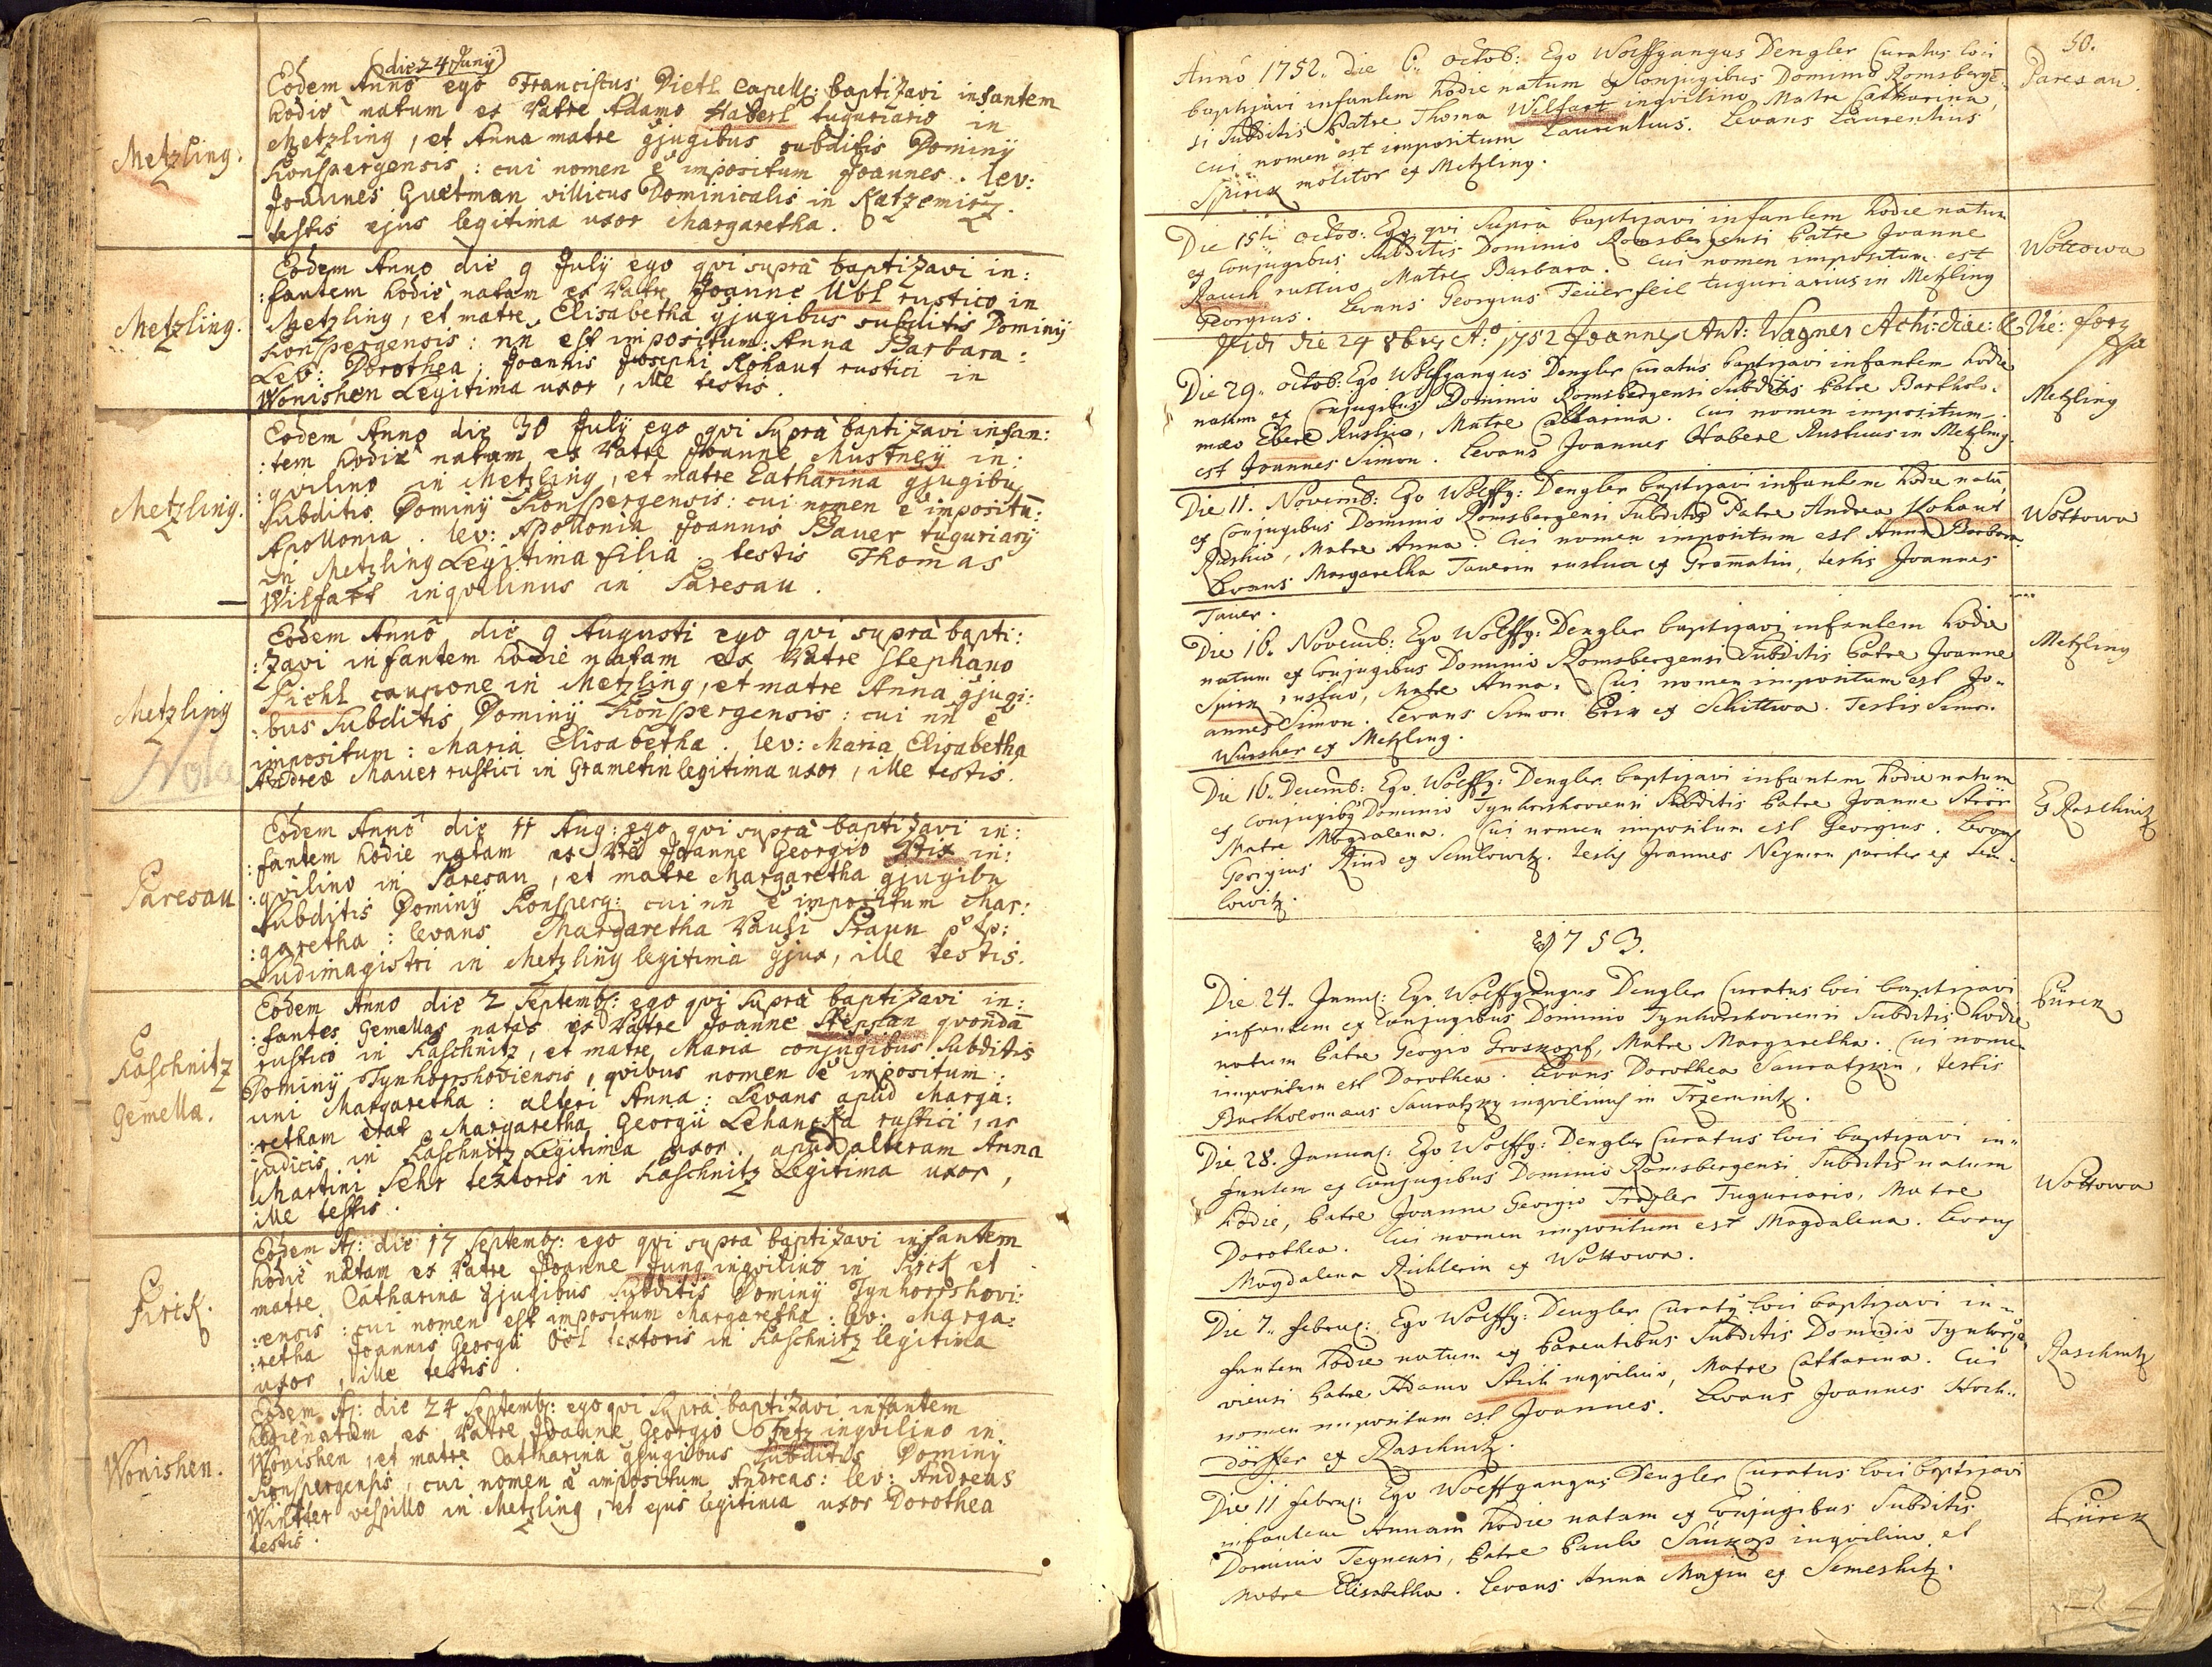 (die 24 Junÿ)
Metzling.
Eodem Anno ego Franciscus Dietl Capell: baptizavi infantem
hodie natum ex Patre Adamo Haberl tuguriario in
Metzling, et Anna matre gjugibus subditis Dominÿ
Konspergensis: cui nomen e impositum Joannes. lev:
Joannes Guetman villicus Dominicalis in Katzemirz.
testis ejus legitima uxor Margaretha.
Metzling.
Eodem Anno die 9 Julÿ ego qvi supra baptizavi in:
:fantem hodie natam ex Patre Joanne Ubl rustico in
Metzling, et matre Elisabetha gjugibus subditis Dominÿ
Konspergensis: nn est impositum: Anna Barbara:
Lev: Dorothea, Joannis Josephi Kohaut rustici in
Wonishen Legitima uxor, ille testis.
Metzling.
Eodem Anno die 30 Julÿ ego qvi supra baptizavi infan:
:tem hodie natam ex Patre Joanne Mustneÿ in:
:qvilino in Metzling, et matre Catharina gjugibu
Subditis Dominÿ Konspergensis: cui nomen e impositu:
Apollonia. lev: Apollonia Joannis Bauer tuguriarÿ
in Metzling Legitima filia. testis Thomas
Wilfart inqvilinus in Paresau.
Metzling
Nota
Eodem Anno die 9 Augusti ego qvi supra bapti:
:zavi infantem hodie natam ex Patre Stephano
Pichl caupone in Metzling, et matre Anna gjugi:
:bus Subditis Dominÿ Konspergensis: cui nn e
impositum: Maria Elisabetha. lev: Maria Elisabetha
Andreæ Mauer rustici in Grametin legitima uxor, ille testis.
Paresau
Eodem Anno die 11 Aug: ego qvi supra baptizavi in:
:fantem hodie natam ex Pre Joanne Georgio Brix in:
:qvilino in Paresau, et matre Margaretha gjugibu
Subditis Dominÿ Konsperg: cui nn e impositum Mar:
:garetha: levans Margaretha Pauli Praun
Ludimagistri in Metzling legitima gjux, ille testis.
Kaschnitz
Gemella.
Eodem Anno die 2 Septemb: ego qvi supra baptizavi in:
:fantes Gemellas natas ex Patre Joanne Stepflan qvonda
rustico in Kaschnitz, et matre Maria conjugibus Subditis
Dominÿ Tynhorshoviensis, qvibus nomen e impositum:
uni Margaretha: alteri Anna: Levans apud Marga:
:retham etat Margaretha Georgii Lehancka rustici, et
judicis in Kaschnitz Legitima uxor. apud alteram Anna
Martini Sehr textoris in Kaschnitz Legitima uxor,
ille testis.
Pirck.
Eodem A: die 17 Septemb: ego qvi supra baptizavi infantem
hodie natam ex Patre Joanne Jung inqvilino in Pirck et
matre Catharina gjugibus subditis Dominÿ Tynhorshovi:
:ensis: cui nomen est impositum Margaretha: lev: Marga:
:retha Joannis Georgii Osl textoris in Kaschnitz legitima
uxor, ille testis.
Wonishen.
Eodem A: die 24 Septemb: ego qvi supra baptizavi infantem
hodie natum ex Patre Joanne Georgio Fetz inqvilino in
Wonishen, et matre Catharina gjugibus subditis Dominÿ
Konspergensis, cui nomen e impositum Andreas: lev: Andreas
Winkter vespillo in Metzling, et ejus legitima uxor Dorothea
testis.
50.
Anno 1752. die 6. octob: Ego Wolffgangus Dengler Curatus loci
Paresau.
baptizavi infantem hodie natum ex Conjugibus Dominio Romsberge-
si Subditis Patre Thoma Wilfart inqvilino, Matre Catharina,
Cui nomen est impositum Laurentius. Levans Laurentius
Spirk molitor ex Metzling.
Die 15ta octob: Ego qvi supra baptizavi infantem hodie natum
Wottowa
ex Conjugibus Subditis Dominio Romsbergensi Patre Joanne
Rauch rustico, Matre Barbara. Cui nomen impositum est
Georgius. Levans Georgius Feüerfeil tuguriarius in Metzling
Vidi die 24 8bris Ao 1752 Joannes Ant: Wagner Archi-diac: & Vic: for
Die 29. octob: Ego Wolffgangus Dengler Curatus baptizavi infantem hodie
Metzling
natum ex Conjugibus Dominio Romsbergensi Subditis Patre Bartholo-
mæo Eberl Rustico, Matre Catharina. Cui nomen impositum
est Joannes Simon. Levans Joannes Haberl Rusticus in Metzling.
Die 11. Novemb: Ego Wolffg: Dengler baptizavi infantem hodie natu,
Wottowa
ex Conjugibus Dominio Romsbergensi Subditis Patre Andrea Kohaut
Rustico, Matre Anna. Cui nomen impositum est Anna Barbara.
Levans Margaretha Tauerin rustica ex Gramatin, testis Joannes
Tauer.
Die 16. Novemb: Ego Wolffg: Dengler baptizavi infantem hodie
Metzling
natum ex Conjugibus Dominio Romsbergensi Subditis Patre Joanne
Spirk rustico, Matre Anna. Cui nomen impositum est Jo-
annes Simon. Levans Simon Brix ex Schittwa. Testis Simon
Wursher ex Metzling.
Die 16. Decemb: Ego Wolffg: Dengler baptizavi infantem hodie natum
Raschnitz
ex Conjugibg Dominio Tynhorshoviensi Subditis Patre Joanne Strör
Matre Magdalena. Cui nomen impositum est Georgius. Levans
Georgius Kind ex Semlowitz. testis Joannes Neÿmon pariter ex Sem-
lowitz.
1753.
Die 24. Januar: Ego Wolffgangus Dengler Curatus loci baptizavi
Pürck
infantem ex Conjugibus Dominio Tynhorshoviensi Subditis hodie
natum Patre Georgio Groskopf, Matre Margaretha. Cui nomen
impositum est Dorothea. Levans Dorothea Sauratzkin, testis
Bartholomæus Sauratzky inqvilinus in Trzeminitz.
Die 28. Januar: Ego Wolffg: Dengler Curatus loci baptizavi in-
Wottowa
fantem ex Conjugibus Dominio Romsbergensi Subditis natum
hodie, Patre Joanne Georgio Tragler Tuguriario, Matre
Dorothea. Cui nomen impositum est Magdalena. Levans
Magdalena Richterin ex Wottowa.
Die 7. februar: Ego Wolffg: Dengler Curatg loci baptizavi in-
Raschnitz
fantem hodie natum ex Parentibus Subditis Dominio Tynhorsho
viensi Patre Adamo Stich inqvilino, Matre Catharina. Cui
nomen impositum est Joannes. Levans Joannes Hoch-
dörffer ex Raschnitz.
Die 11 februar: Ego Wolffgangus Dengler Curatus loci baptizavi
Pürck
infantem Annam hodie natam ex Conjugibus Subditis
Dominio Teynensi, Patre Paulo Saükop inqvilino et
Matre Elisabetha. Levans Anna Mayin ex Semeshitz.